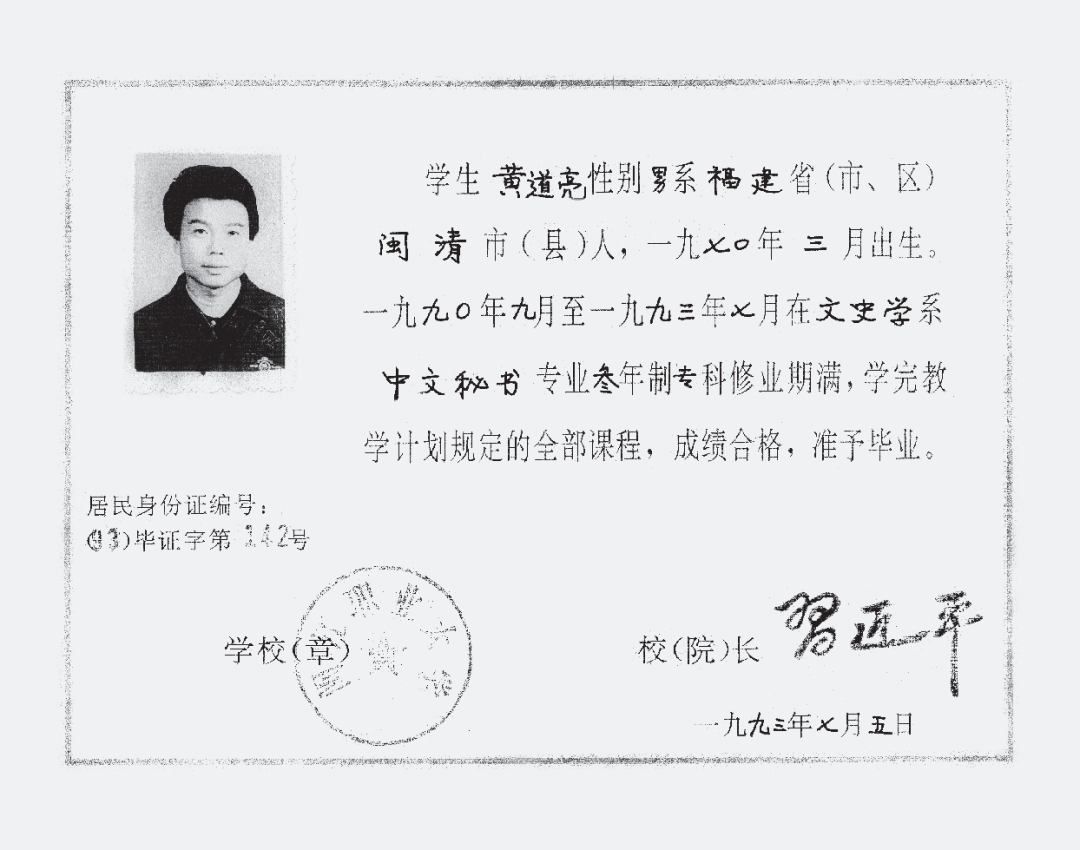 学生 黄道亮 性别 男 系 福建 省(市、区)
闽清 市(县)人，一九七〇年 三 月出生。
一九九〇年九月至一九九三年七月在文史学系
中文秘书 专业叁年制专科修业期满，学完教
学计划规定的全部课程，成绩合格，准予毕业。
居民身份证编号：
(93)毕证字第 142号
职业大学
学校(章)
校(院)长 習近平
一九九三年七月五日